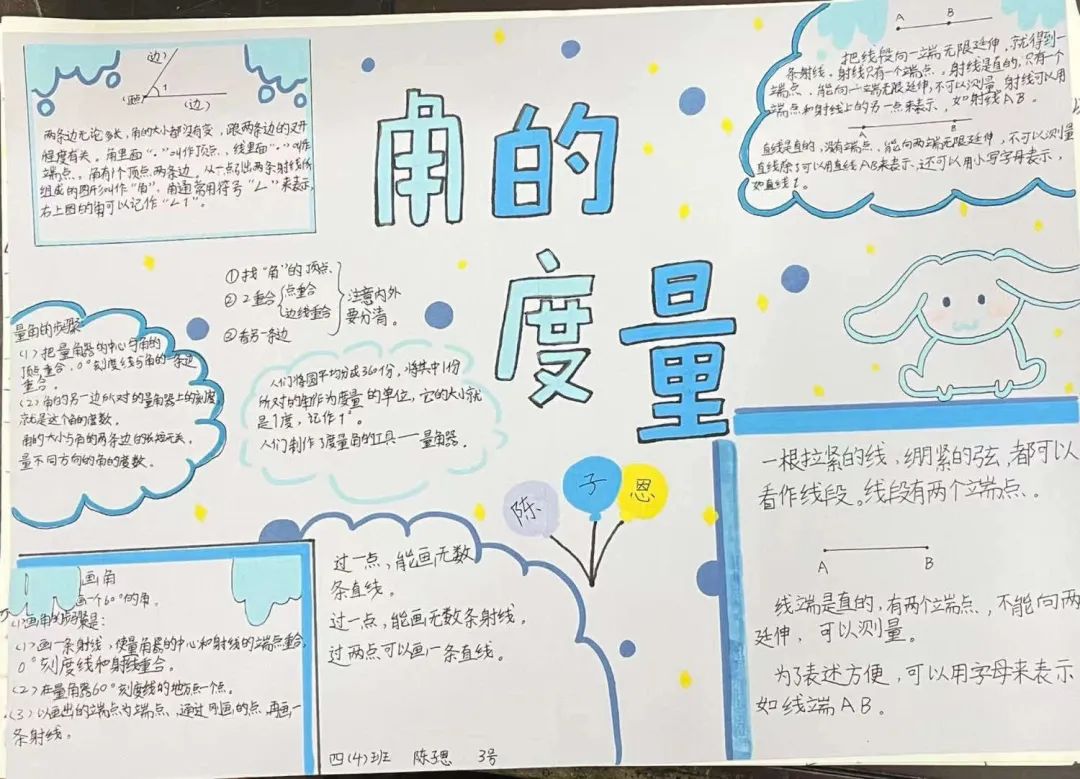 角的
度量
边
1
(边)
两条边无论多长,角的大小都没有变,跟两条边的叉开
程度有关。角里面“·”叫作顶点、线里面“·”叫作
端点、角有1个顶点、两条边。从一点引出两条射线所
组成的图形叫作“角”,角通常用符号“∠”来表示,
右上图的角可以记作“∠1”。
A B
把线段向一端无限延伸,就得到一
条射线,射线只有一个端点,射线是直的,只有一个
端点、能向一端无限延伸,不可以测量,射线可以用
端点和射线上的另一点来表示,如射线AB。
直线是直的,没有端点、能向两端无限延伸,不可以测量
直线除了可以用直线AB来表示,还可以用小写字母表示,
如直线l。
①找“角”的顶点
②2重合
点重合
边线重合
③看另一条边
注意内外
要分清。
量角的步骤
(1)把量角器的中心与角的
顶点重合,0°刻度线与角的一条边
重合。
(2)角的另一边所对的量角器上的刻度,
就是这个角的度数。
角的大小与角的两条边的长短无关,
量不同方向的角的度数。
人们将圆平均分成360份,将其中1份
所对的角作为度量的单位,它的大小就
是1度,记作1°。
人们制作了度量角的工具——量角器。
陈 子 恩
一根拉紧的线,绷紧的弦,都可以
看作线段。线段有两个端点、。
A B
线端是直的,有两个端点、,不能向两
延伸,可以测量。
为了表述方便,可以用字母来表示
如线端AB。
画角
画一个60°的角。
画角的步骤是:
(1)画一条射线,使量角器的中心和射线的端点重合,
0°刻度线和射线重合。
(2)在量角器60°刻度线的地方点一个点。
(3)以画出的端点为端点、通过刚画的点,再画一
条射线。
过一点,能画无数
条直线。
过一点,能画无数条射线。
过两点可以画一条直线。
四(4)班 陈子恩 3号